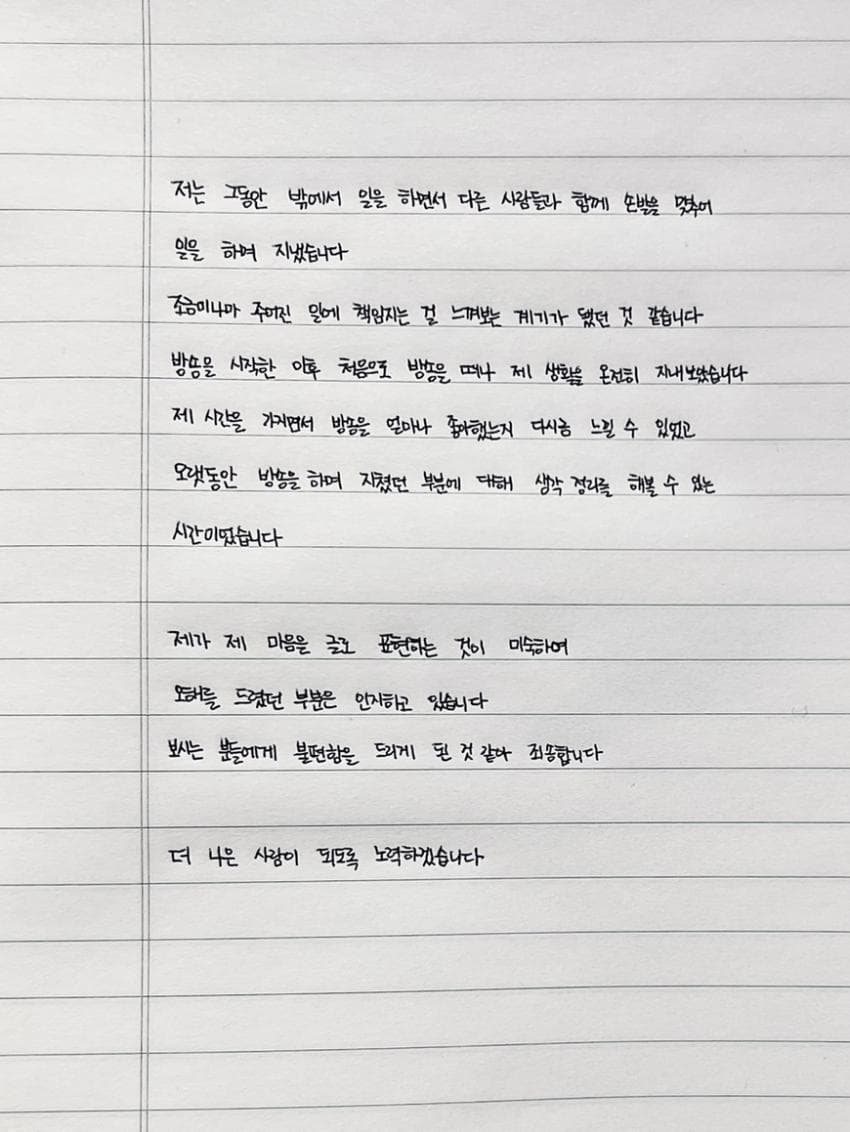 저는 그동안 밖에서 일을 하면서 다른 사람들과 함께 손발을 맞추어
일을 하며 지냈습니다
조금이나마 주어진 일에 책임지는 걸 느껴보는 계기가 됐던 것 같습니다
방송을 시작한 이후 처음으로 방송을 떠나 제 생활을 온전히 지내보았습니다
제 시간을 가지면서 방송을 얼마나 좋아했는지 다시금 느낄 수 있었고
오랫동안 방송을 하며 지쳤던 부분에 대해 생각 정리를 해볼 수 있는
시간이었습니다
제가 제 마음을 글로 표현하는 것이 미숙하여
오해를 드렸던 부분은 인지하고 있습니다
보시는 분들에게 불편함을 드리게 된 것 같아 죄송합니다
더 나은 사람이 되도록 노력하겠습니다